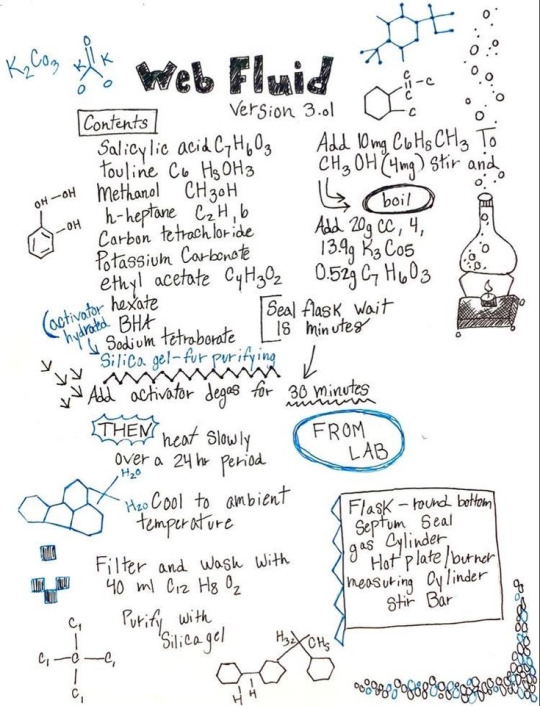 K2CO3
K K
O O O
Web Fluid
Version 3.01
Contents
Salicylic acid C7H6O3
touline C6 H5OH3
Methanol CH3OH
h-heptane C2H,6
Carbon tetrachloride
Potassium Carbonate
ethyl acetate C4H3O2
hexate
BHA
(activator hydrated
Sodium tetraborate
Silica gel-fur purifying
Add 10mg C6H5CH3 To
CH3OH (4mg) Stir and
boil
Add 20g CC, 4,
13.9g K3Co5
0.52g C7 H6O3
Seal flask wait
18 minutes
Add activator degas for 30 minutes
THEN heat slowly
over a 24 hr period
FROM
LAB
H2O
H2O
Cool to ambient
temperature
Filter and Wash with
40 ml C12 H8 O2
Purify with
Silica gel
Flask - round bottom
Septum Seal
gas Cylinder
Hot plate/burner
measuring Cylinder
Stir Bar
OH -OH
-OH
C -C
C
C
C1
C1 -C- C1
C1
H32 CH5
H H